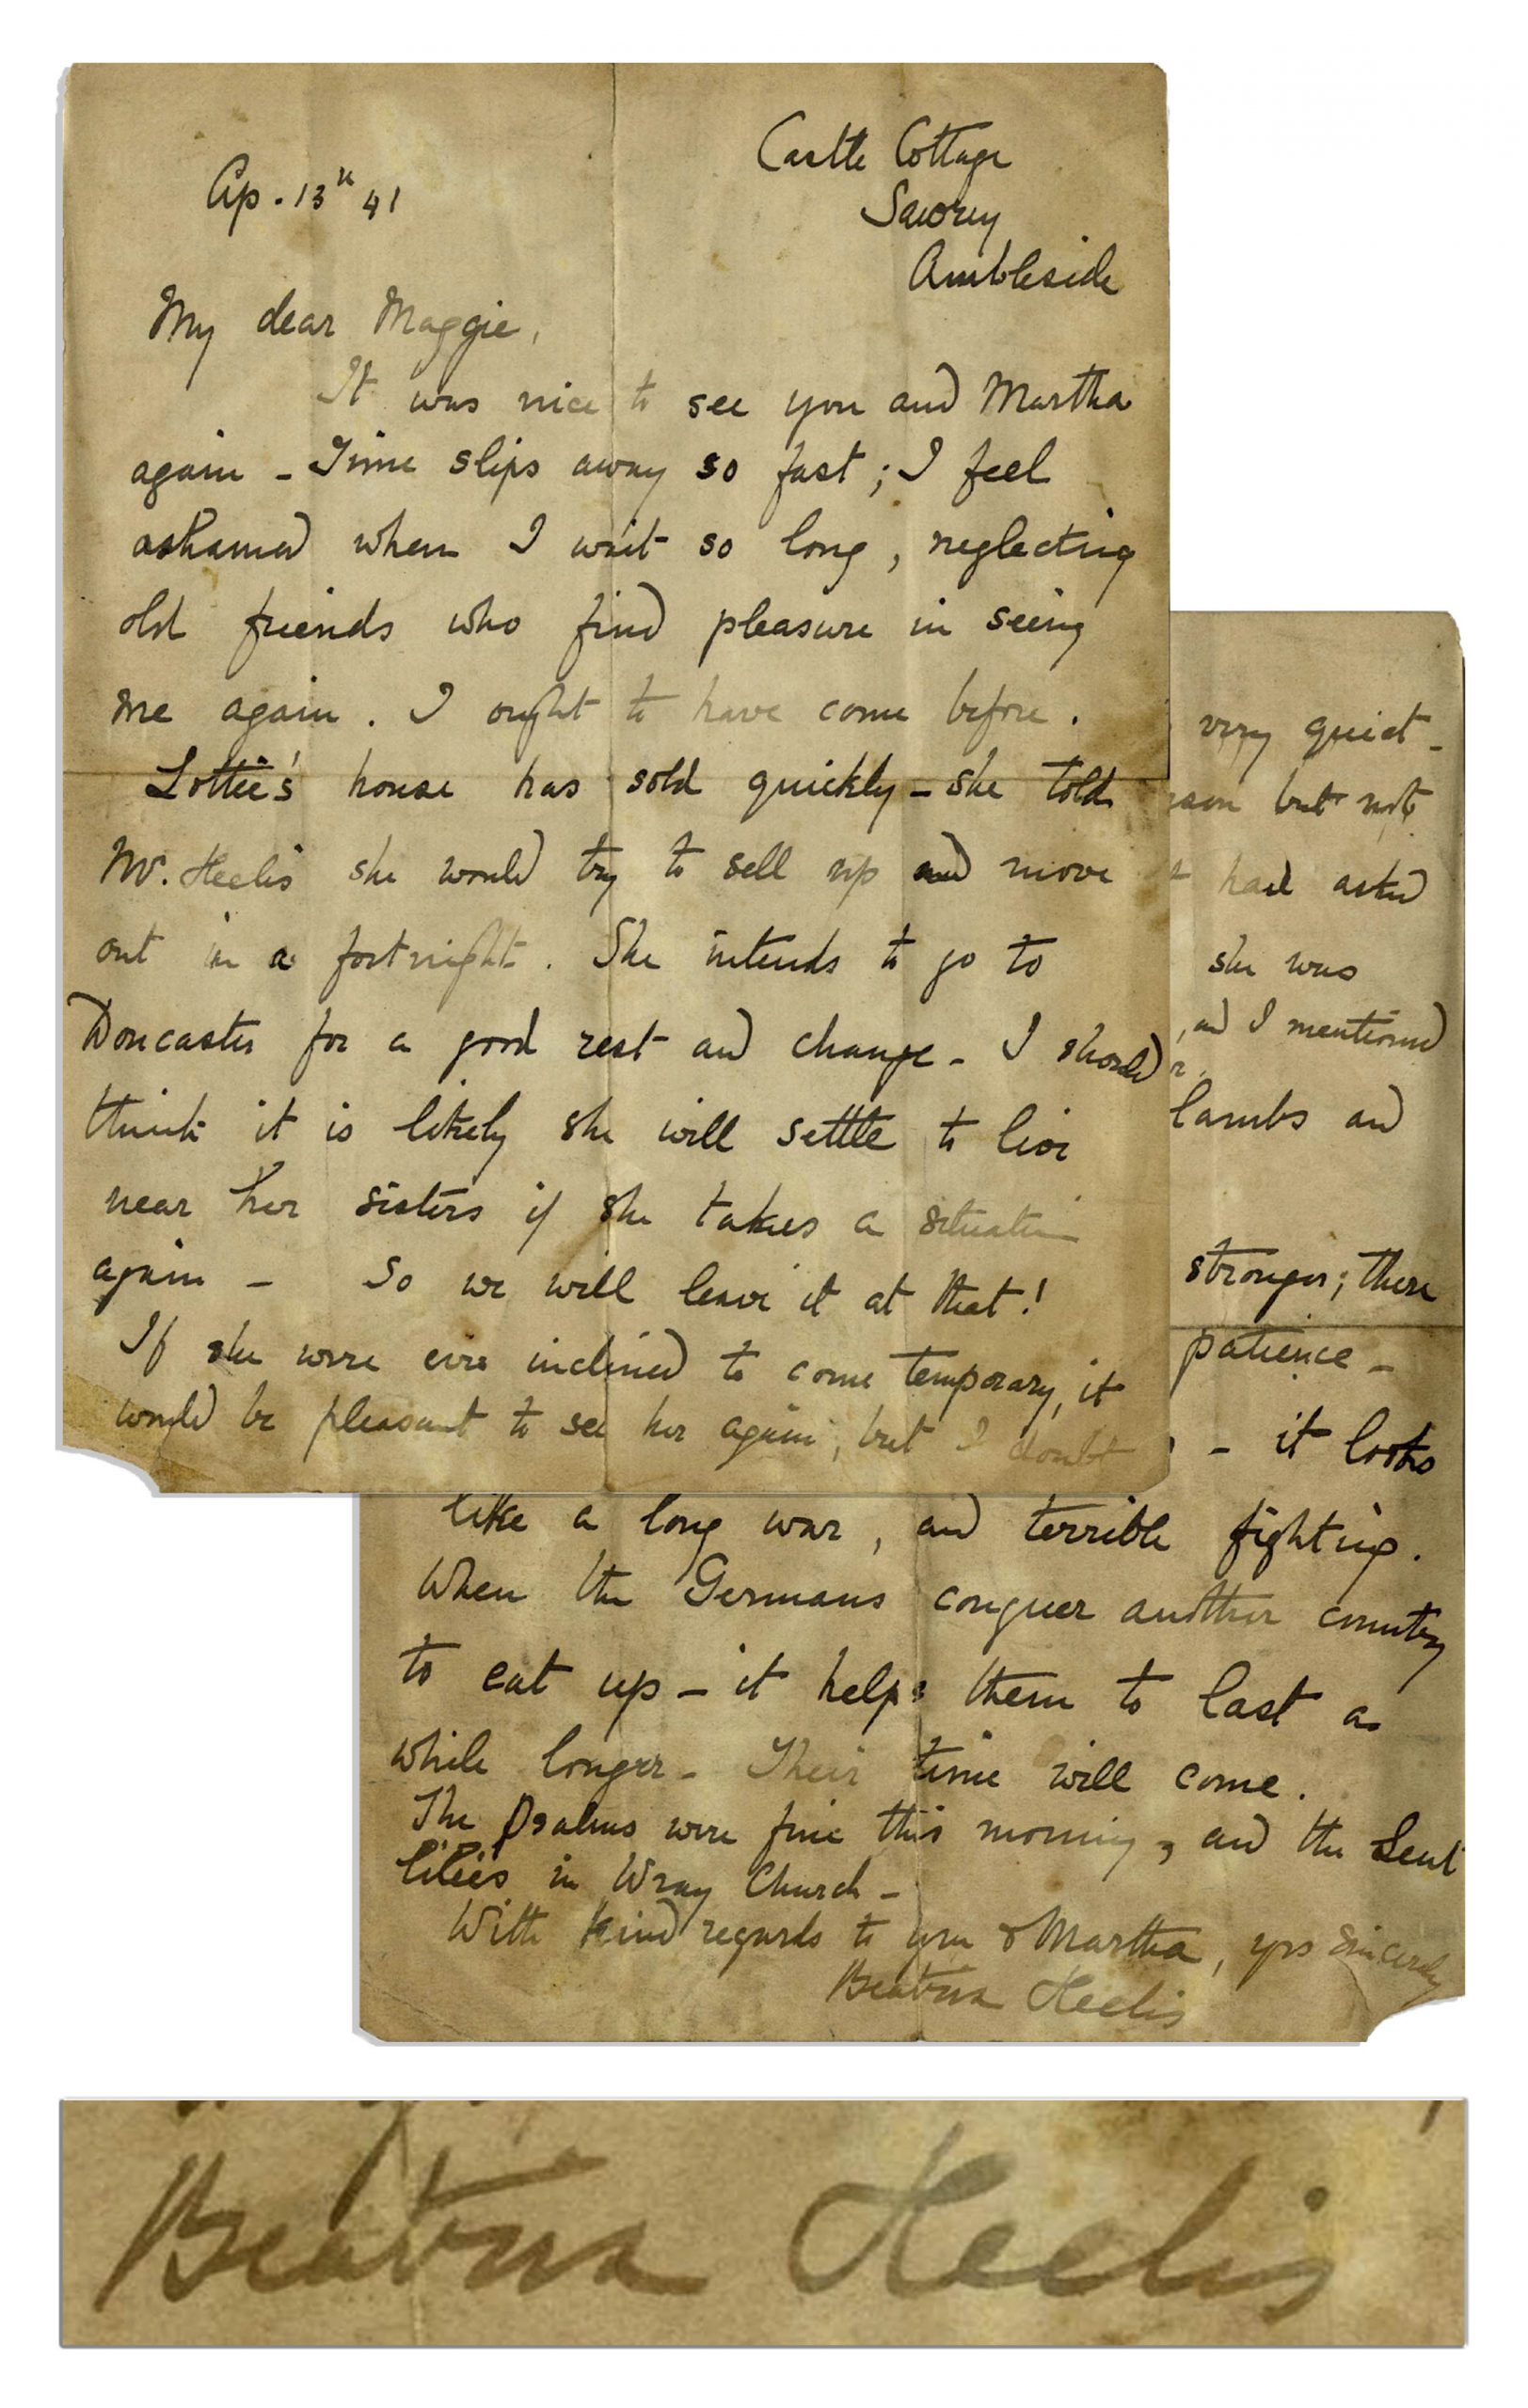 Castle Cottage
Ap. 13th 41
Sawrey
Ambleside
My dear Maggie,
It was nice to see you and Martha
again - Time slips away so fast; I feel
ashamed when I wait so long, neglecting
old friends who find pleasure in seeing
me again. I ought to have come before.
Lottie's house has sold quickly - she told
Mr. Heelis she would try to sell up and move
out in a fortnight. She intends to go to
Doncaster for a good rest and change - I should
think it is likely she will settle to live
near her sisters if she takes a situation
again - So we will leave it at that!
If she were ever inclined to come temporary, it
would be pleasant to see her again; but I doubt
very quiet -
but not
had asked
she was
, and I mentioned
lambs and
stronger; there
patience -
- it looks
like a long war, and terrible fighting.
When the Germans conquer another country
to eat up - it helps them to last a
while longer - Their time will come.
The Psalms were fine this morning, and the Lent
lilies in Wray Church -
With kind regards to you & Martha, yrs sincerely
Beatrix Heelis
Beatrix Heelis